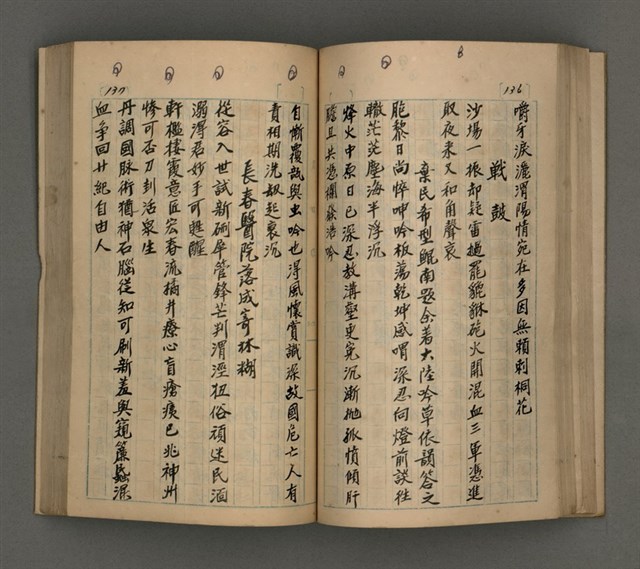 136
嚼牙淚灑渭陽情宛在多因無賴刺桐花
戰鼓
沙場一振却疑雷撾罷貔貅砲火開混血三軍憑進
退夜來又和角聲哀
棄民希型鯤南題余著大陸吟草依韻答之
胞黎日尚悴呻吟板蕩乾坤感喟深忍向燈前談往
轍茫茫塵海半浮沉
烽火中原日已深忍教溝壑更冤沉漸拋孤憤傾肝
膽且共憑欄發浩吟
137
自慚覆瓿與虫吟也得風懷賞識深故國危亡人有
責相期洗奴起衰沉
長春醫院落成寄林糊
從容入世試新硎犀管鋒芒判渭涇扭俗頑迷民酒
溺淂君妙手可甦醒
軒檻棲霞意匠宏春流橘井療心盲瘡痍已兆神州
慘可否刀圭活眾生
丹調國脉術猶神石腦從知可刷新羞與籧篨民混
血爭回廿紀自由人